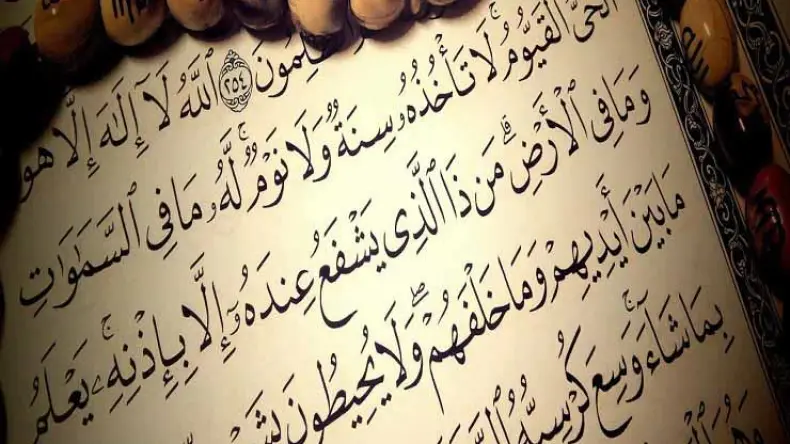 ٢٥٤ ٱللَّهُ لَآ إِلَٰهَ إِلَّا هُوَ
ٱلْحَىُّ ٱلْقَيُّومُ ۚ لَا تَأْخُذُهُۥ سِنَةٌ وَلَا نَوْمٌ ۚ لَّهُۥ مَا فِى ٱلسَّمَٰوَٰتِ
وَمَا فِى ٱلْأَرْضِ ۗ مَن ذَا ٱلَّذِى يَشْفَعُ عِندَهُۥٓ إِلَّا بِإِذْنِهِۦ ۚ يَعْلَمُ
مَا بَيْنَ أَيْدِيهِمْ وَمَا خَلْفَهُمْ ۖ وَلَا يُحِيطُونَ
بِمَا شَآءَ ۚ وَسِعَ كُرْسِيُّهُ
وَهُوَ